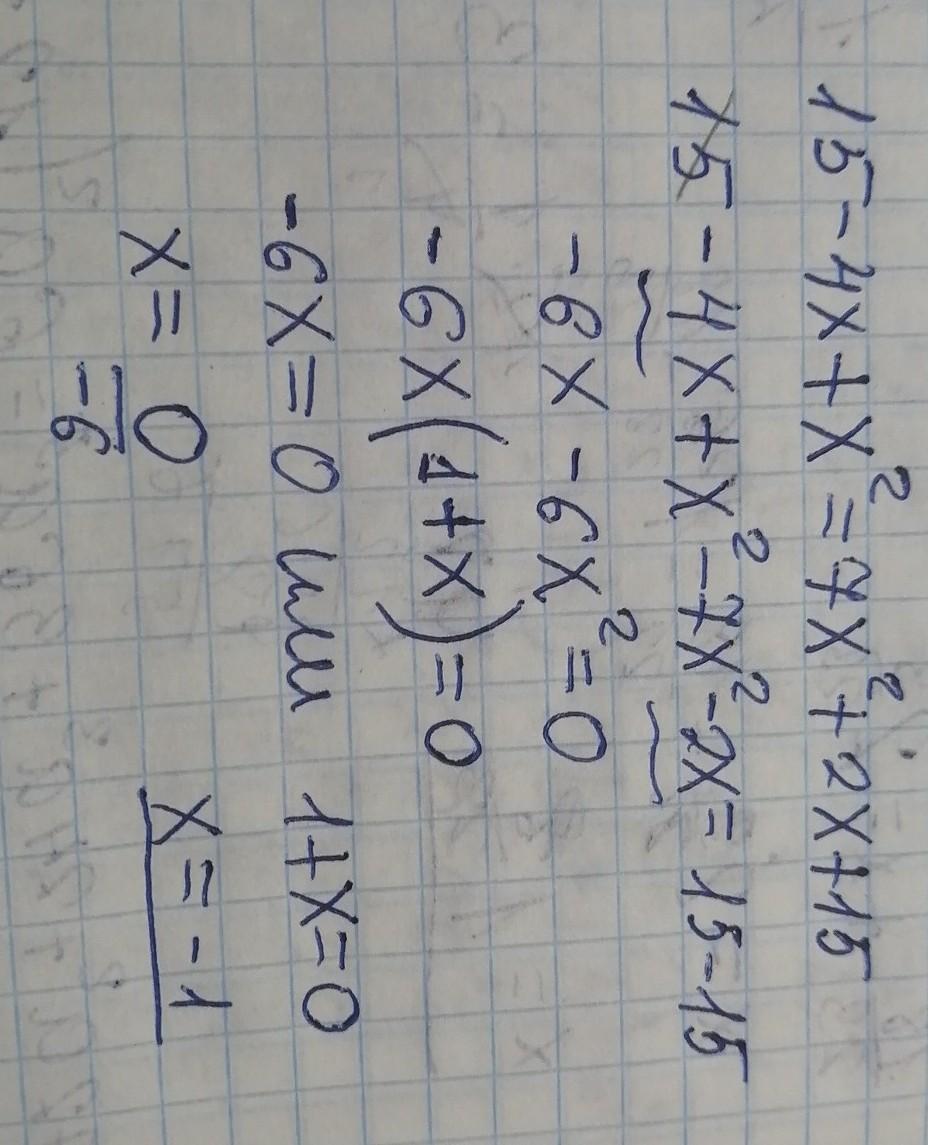 15-4x+x²=7x²+2x+15
15-4x+x²-7x²-2x=15-15
-6x-6x²=0
-6x(1+x)=0
-6x=0 или 1+x=0
x=0/-6 x=-1